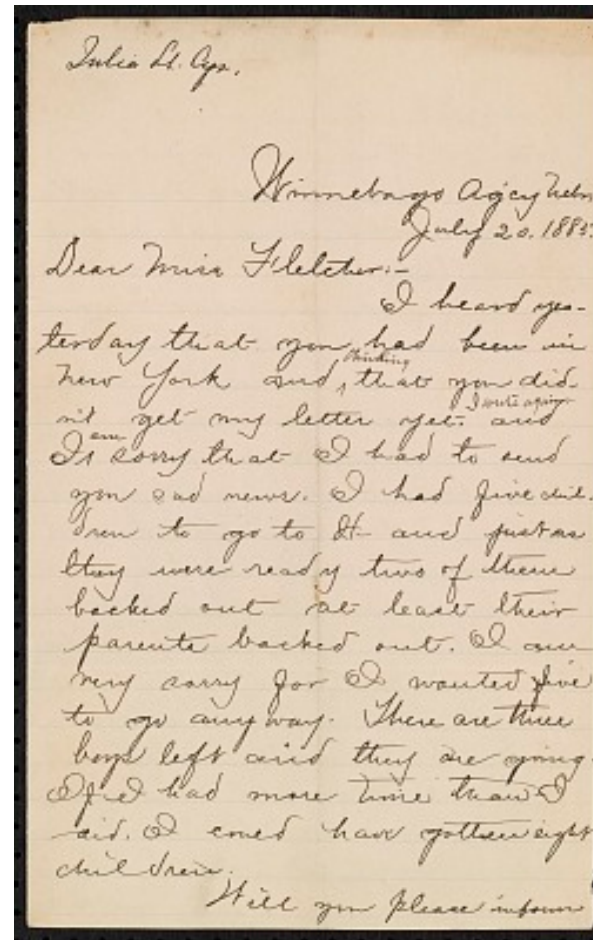 Julia St. Cyr.
Winnebago Agcy Nebr
July 20. 1885.
Dear Miss Fletcher:-
I heard yes-
terday that you had been in
thinking
New York and, that you did-
I write again
n't get my letter yet. and
am
I sorry that I had to send
you sad news. I had five chil-
dren to go to H- and just as
they were ready two of them
backed out at least their
parents backed out. I am
very sorry for I wanted five
to go anyway. There are three
boys left and they are going.
If I had more time than I
did. I could have gotten eight
children.
Will you please inform